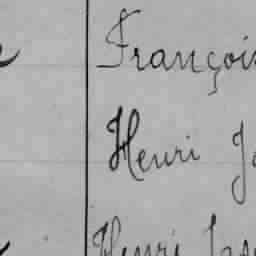 François
Henri
Henri